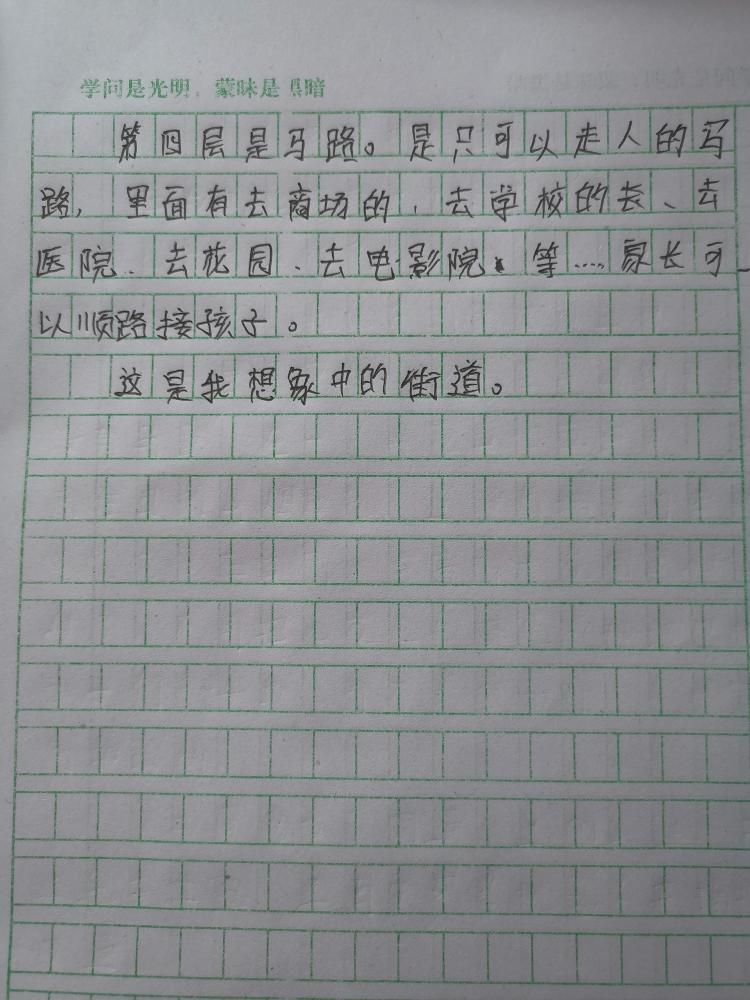 学问是光明，蒙昧是黑暗
第四层是马路。是只可以走人的写
路，里面有去商场的、去学校的长、去
医院、去花园、去电影院、等……家长可
以顺路接孩子。
这是我想象中的街道。